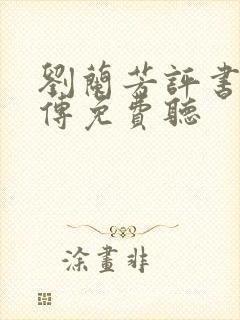 劉蘭芳評書
傳免費聽
涂畫非